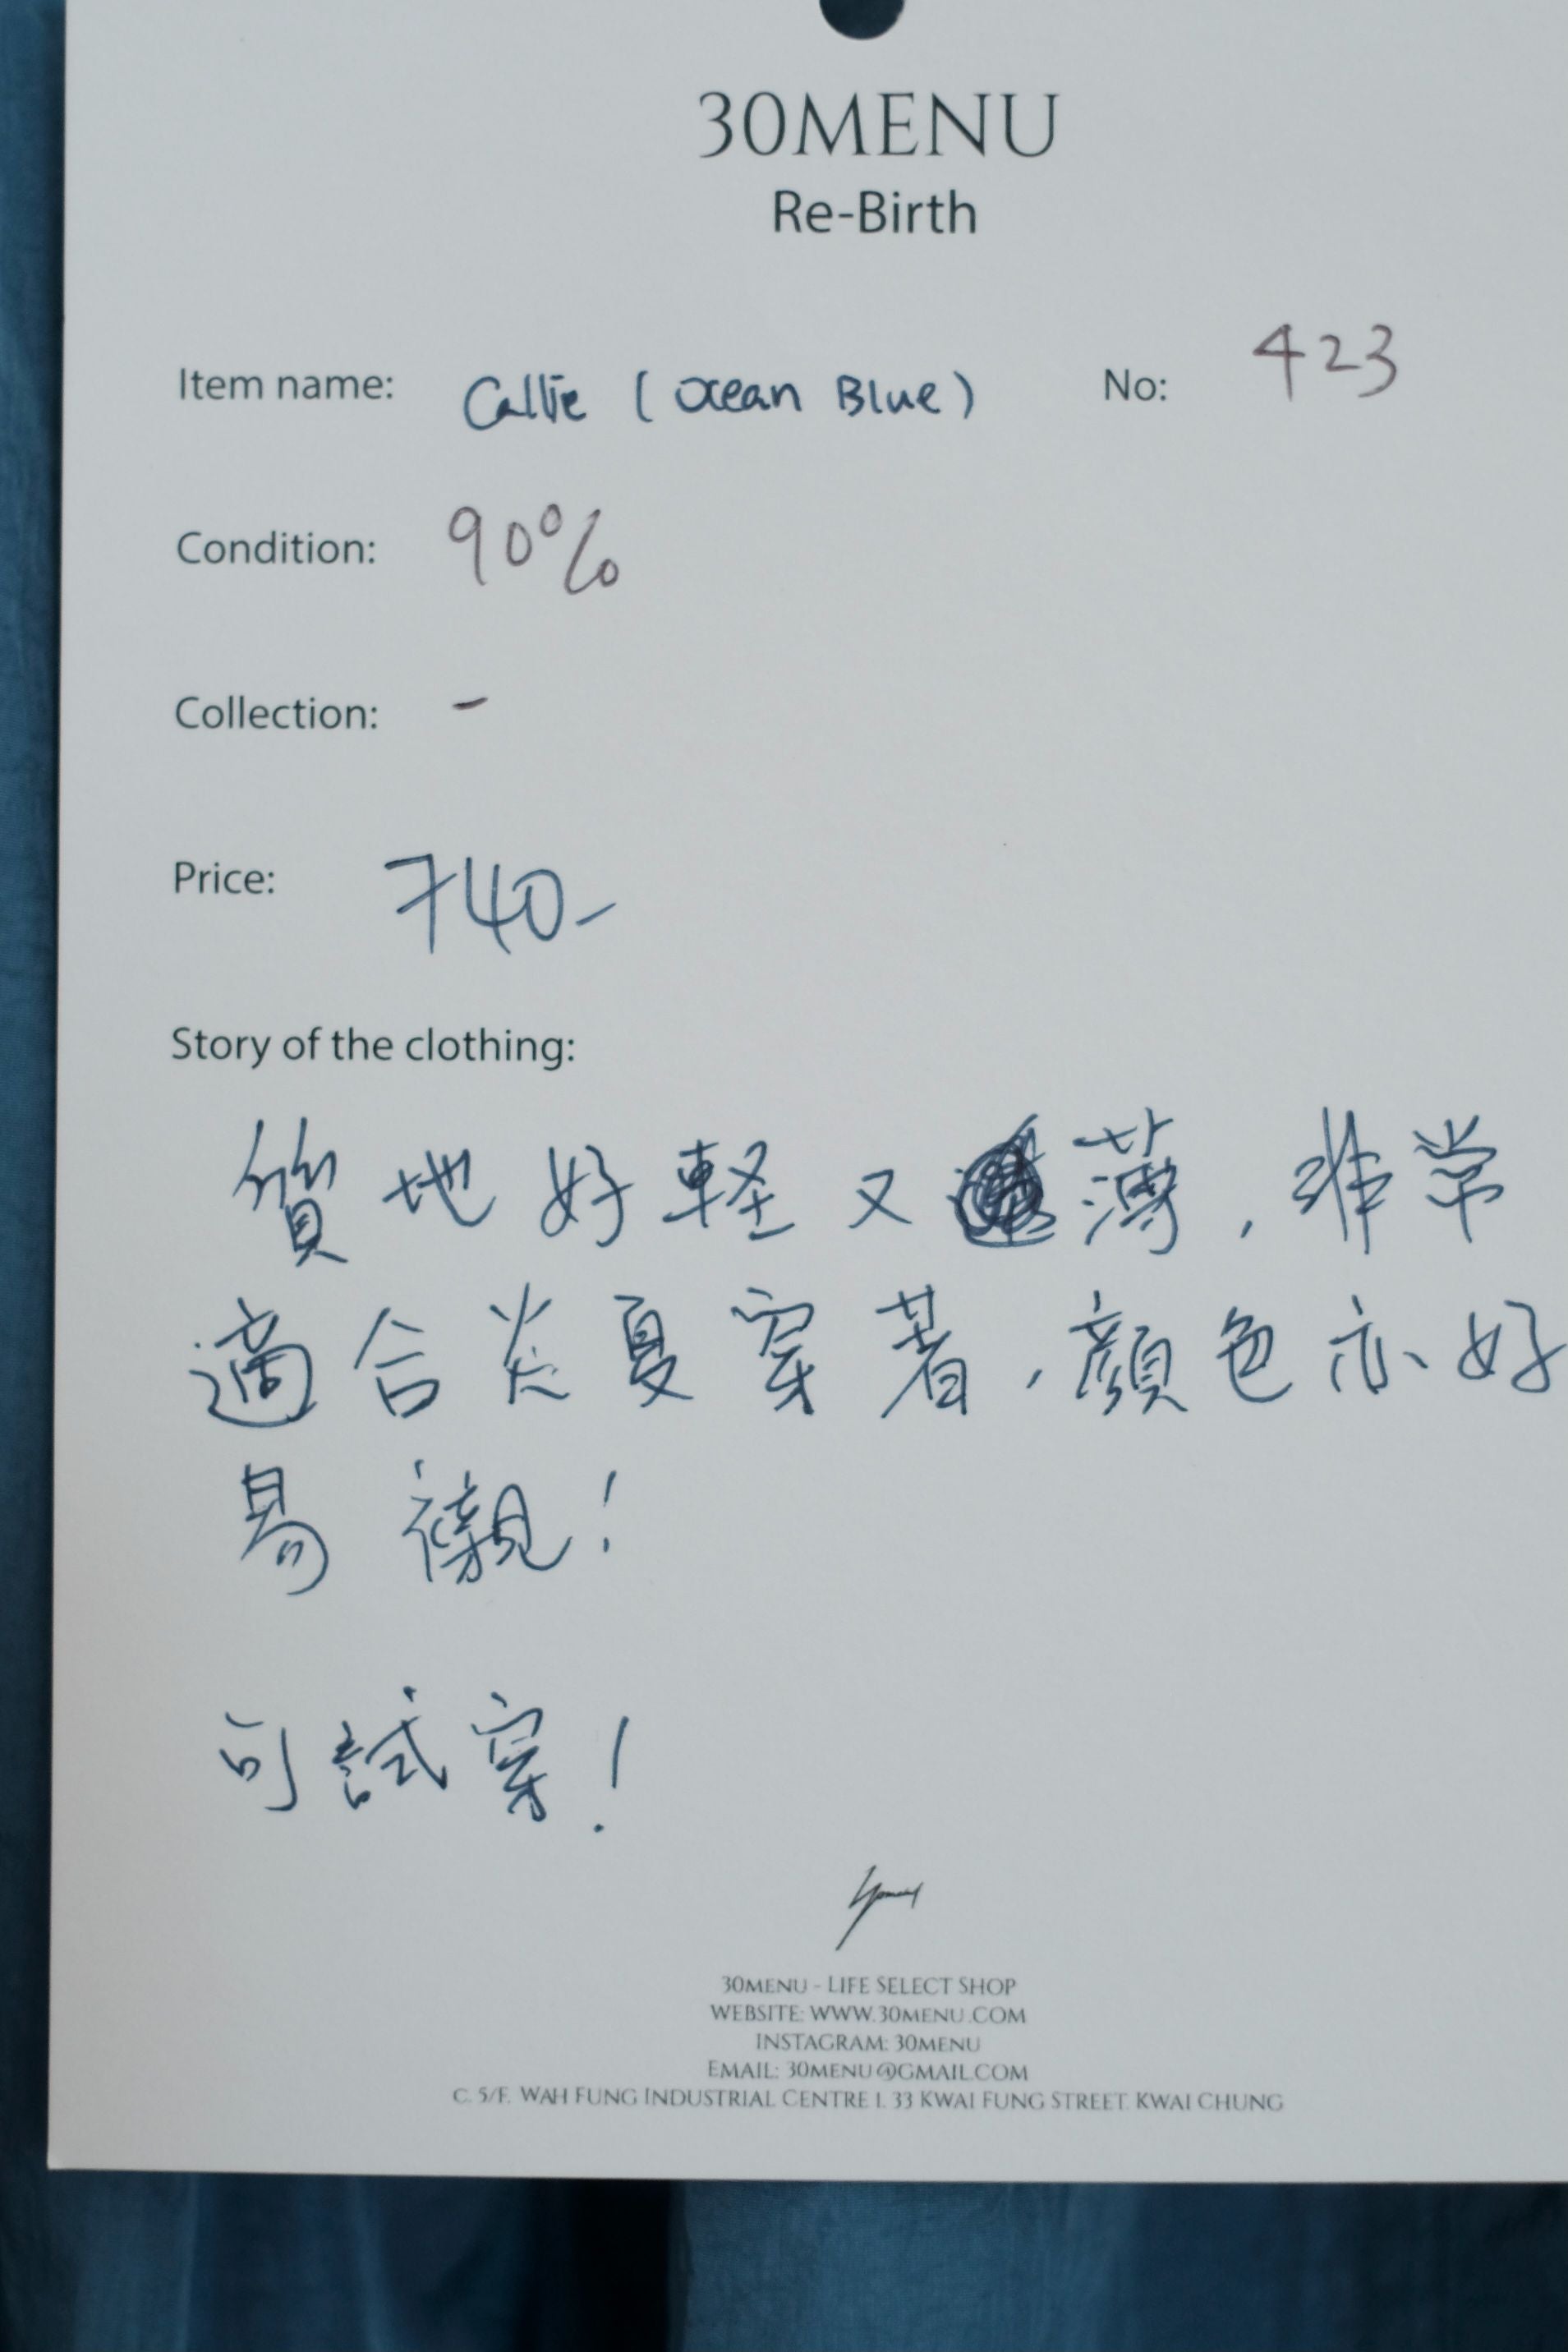 30MENU
Re-Birth
Item name: Callie (Ocean Blue) No: 423
Condition: 90%
Collection: -
Price: 740-
Story of the clothing:
質地好軽又薄，非常
適合炎夏穿著，顏色亦好
易襯！
可試穿！
30MENU - LIFE SELECT SHOP
WEBSITE: WWW.30MENU.COM
INSTAGRAM: 30MENU
EMAIL: 30MENU@GMAIL.COM
C. 5/F. WAH FUNG INDUSTRIAL CENTRE I. 33 KWAI FUNG STREET. KWAI CHUNG